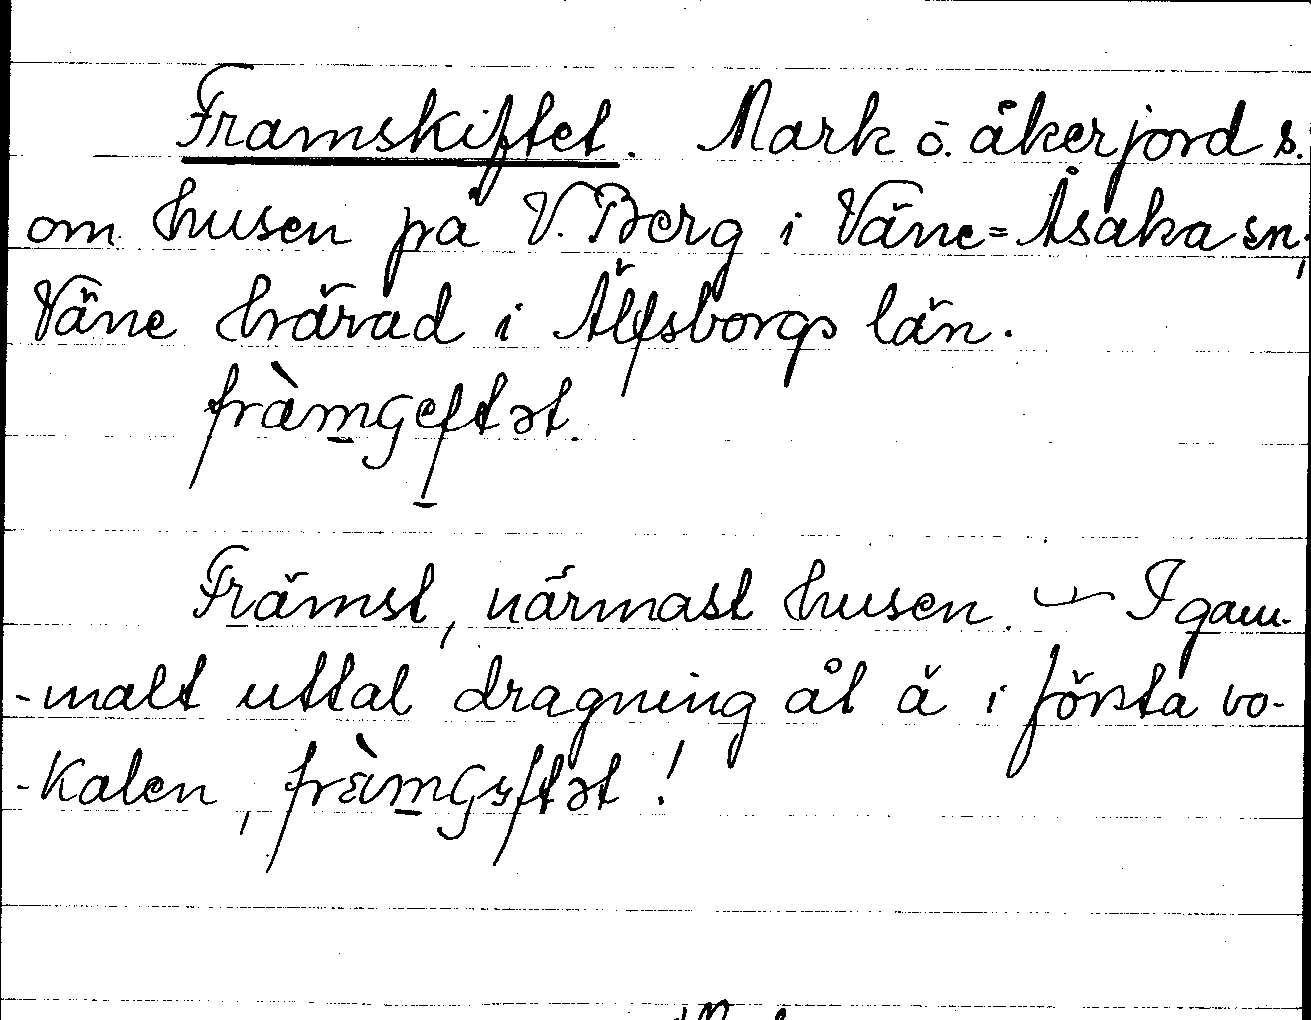 Framskiftet. Mark ö. åkerjord s.
om husen på V. Berg i Väne=Åsaka sn,
Väne härad i Älfsborgs län.
fràmɢeftət.
Främst, närmast husen. — I gam-
-malt uttal dragning åt ä i första vo-
-kalen, fràmɢɪftət!